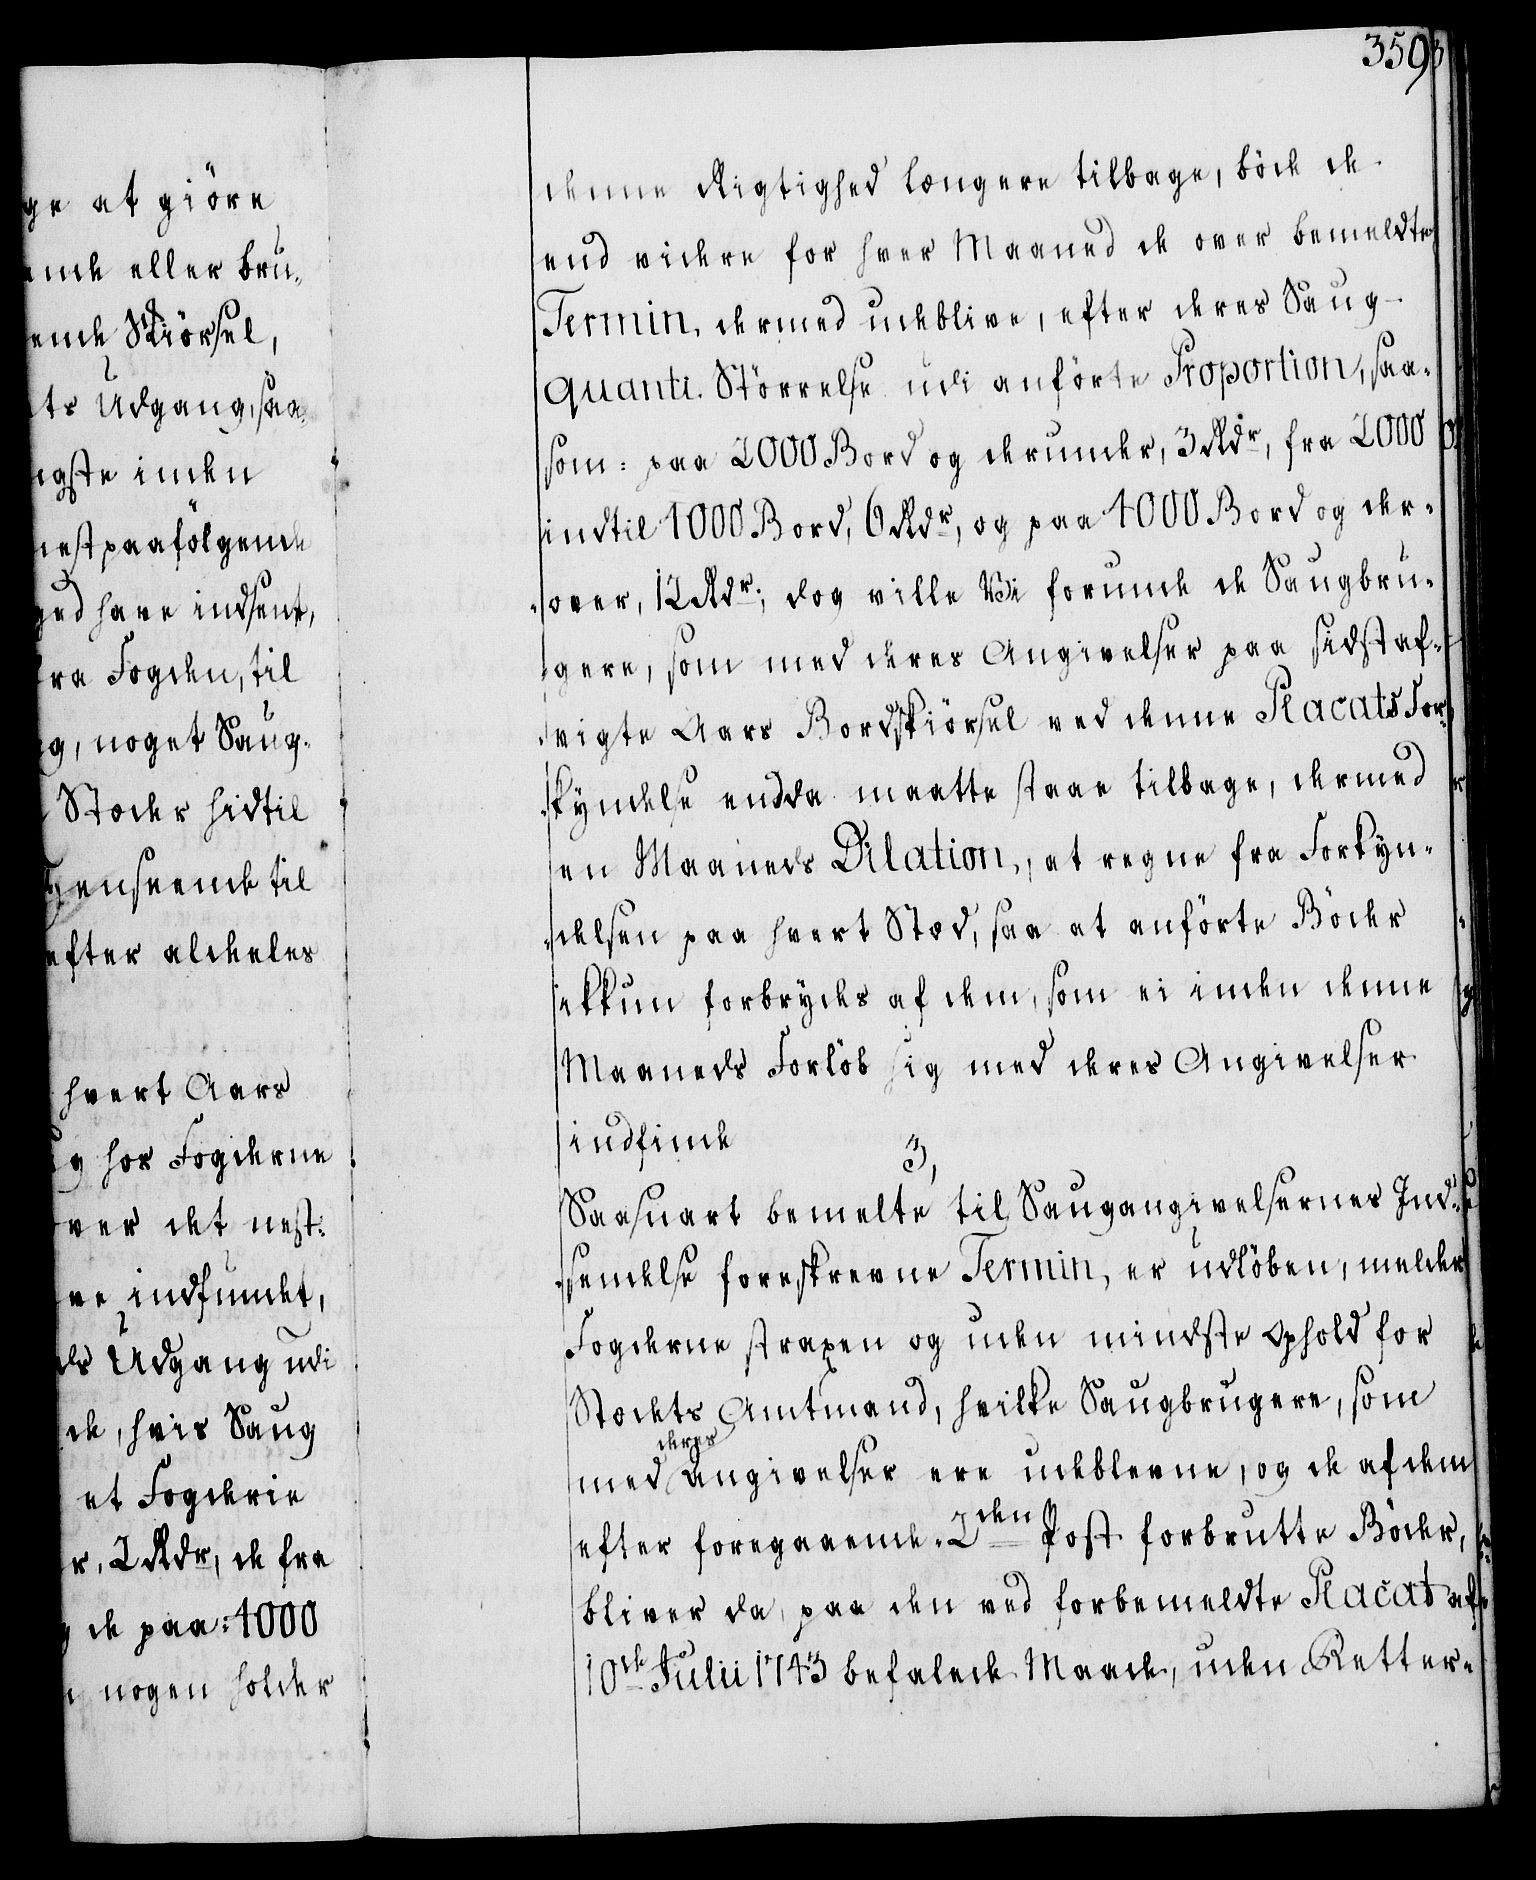 359
ge at giöre
ende eller bru-
ende Skiörsel,
ts Udgang, saa-
ngste inden
nestpaafölgende
ged have indsent,
fra Fogden, til
g, noget Saug-
Stæder hidtil
genseende til
efter aldeles
hvert Aars
g hos Fogderne
ver det nest-
ve indfundet,
ds Udgang udi
de, hvis Saug
et Fogderie
r, 2 Rdr, de fra
g de paa: 4000
nogen holder
denne Rigtighed længere tilbage, böde de
end videre for hver Maaned de over bemeldte
Termin, dermed udeblive, efter deres Saug-
quanti Störrelse udi anförte Proportion, saa-
som: paa 2000 Bord og derunder, 3 Rdr, fra 2000
indtil 4000 Bord, 6 Rdr, og paa 4000 Bord og der-
over, 12 Rdr; dog ville Vi forunde de Saugbru-
gere, som med deres Angivelser paa sidstaf-
vigte Aars Bordskiörsel ved denne Placats For-
kyndelse endda maatte staae tilbage, dermed
en Maaneds Dilation, at regne fra Forkyn-
delsen paa hvert Sted, saa at anförte Böder
ikkun forbrydes af dem, som ei inden denne
Maaneds Forlöb sig med deres Angivelser
indfinde
3,
Saasnart bemelte til Saugangivelsernes Ind-
sendelse foreskrevne Termin, er udlöben, melder
Fogderne straxen og uden mindste Ophold for
Stædets Amtmand, hvilke Saugbrugere, som
med deres Angivelser ere udeblevne, og de af dem
efter foregaaende 2den Post forbrutte Böder,
bliver da, paa den ved forbemeldte Placat af
10de Julii 1743 befalede Maade, uden Retter-